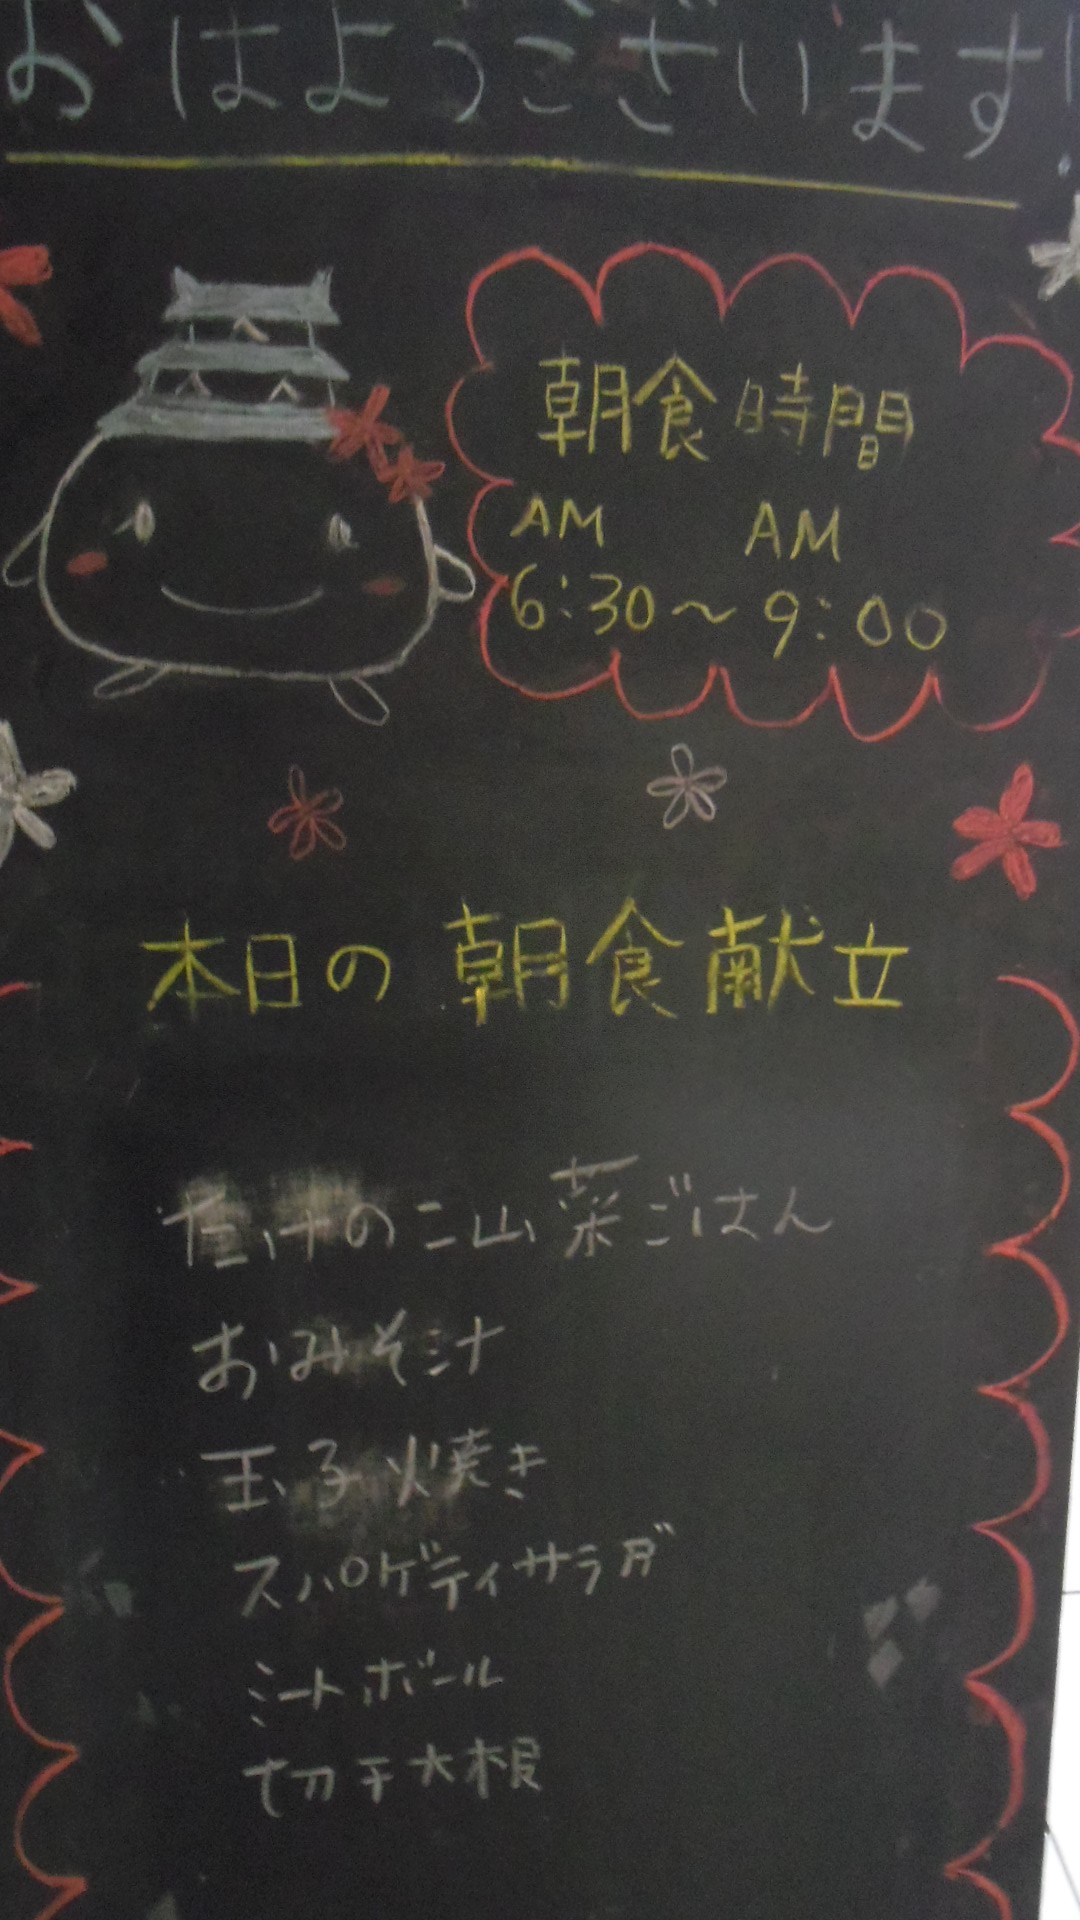 おはようございます!
朝食時間
AM AM
6:30〜9:00
本日の朝食献立
たけのこ山菜ごはん
おみそ汁
玉子焼き
スパゲティサラダ
ミートボール
切干大根